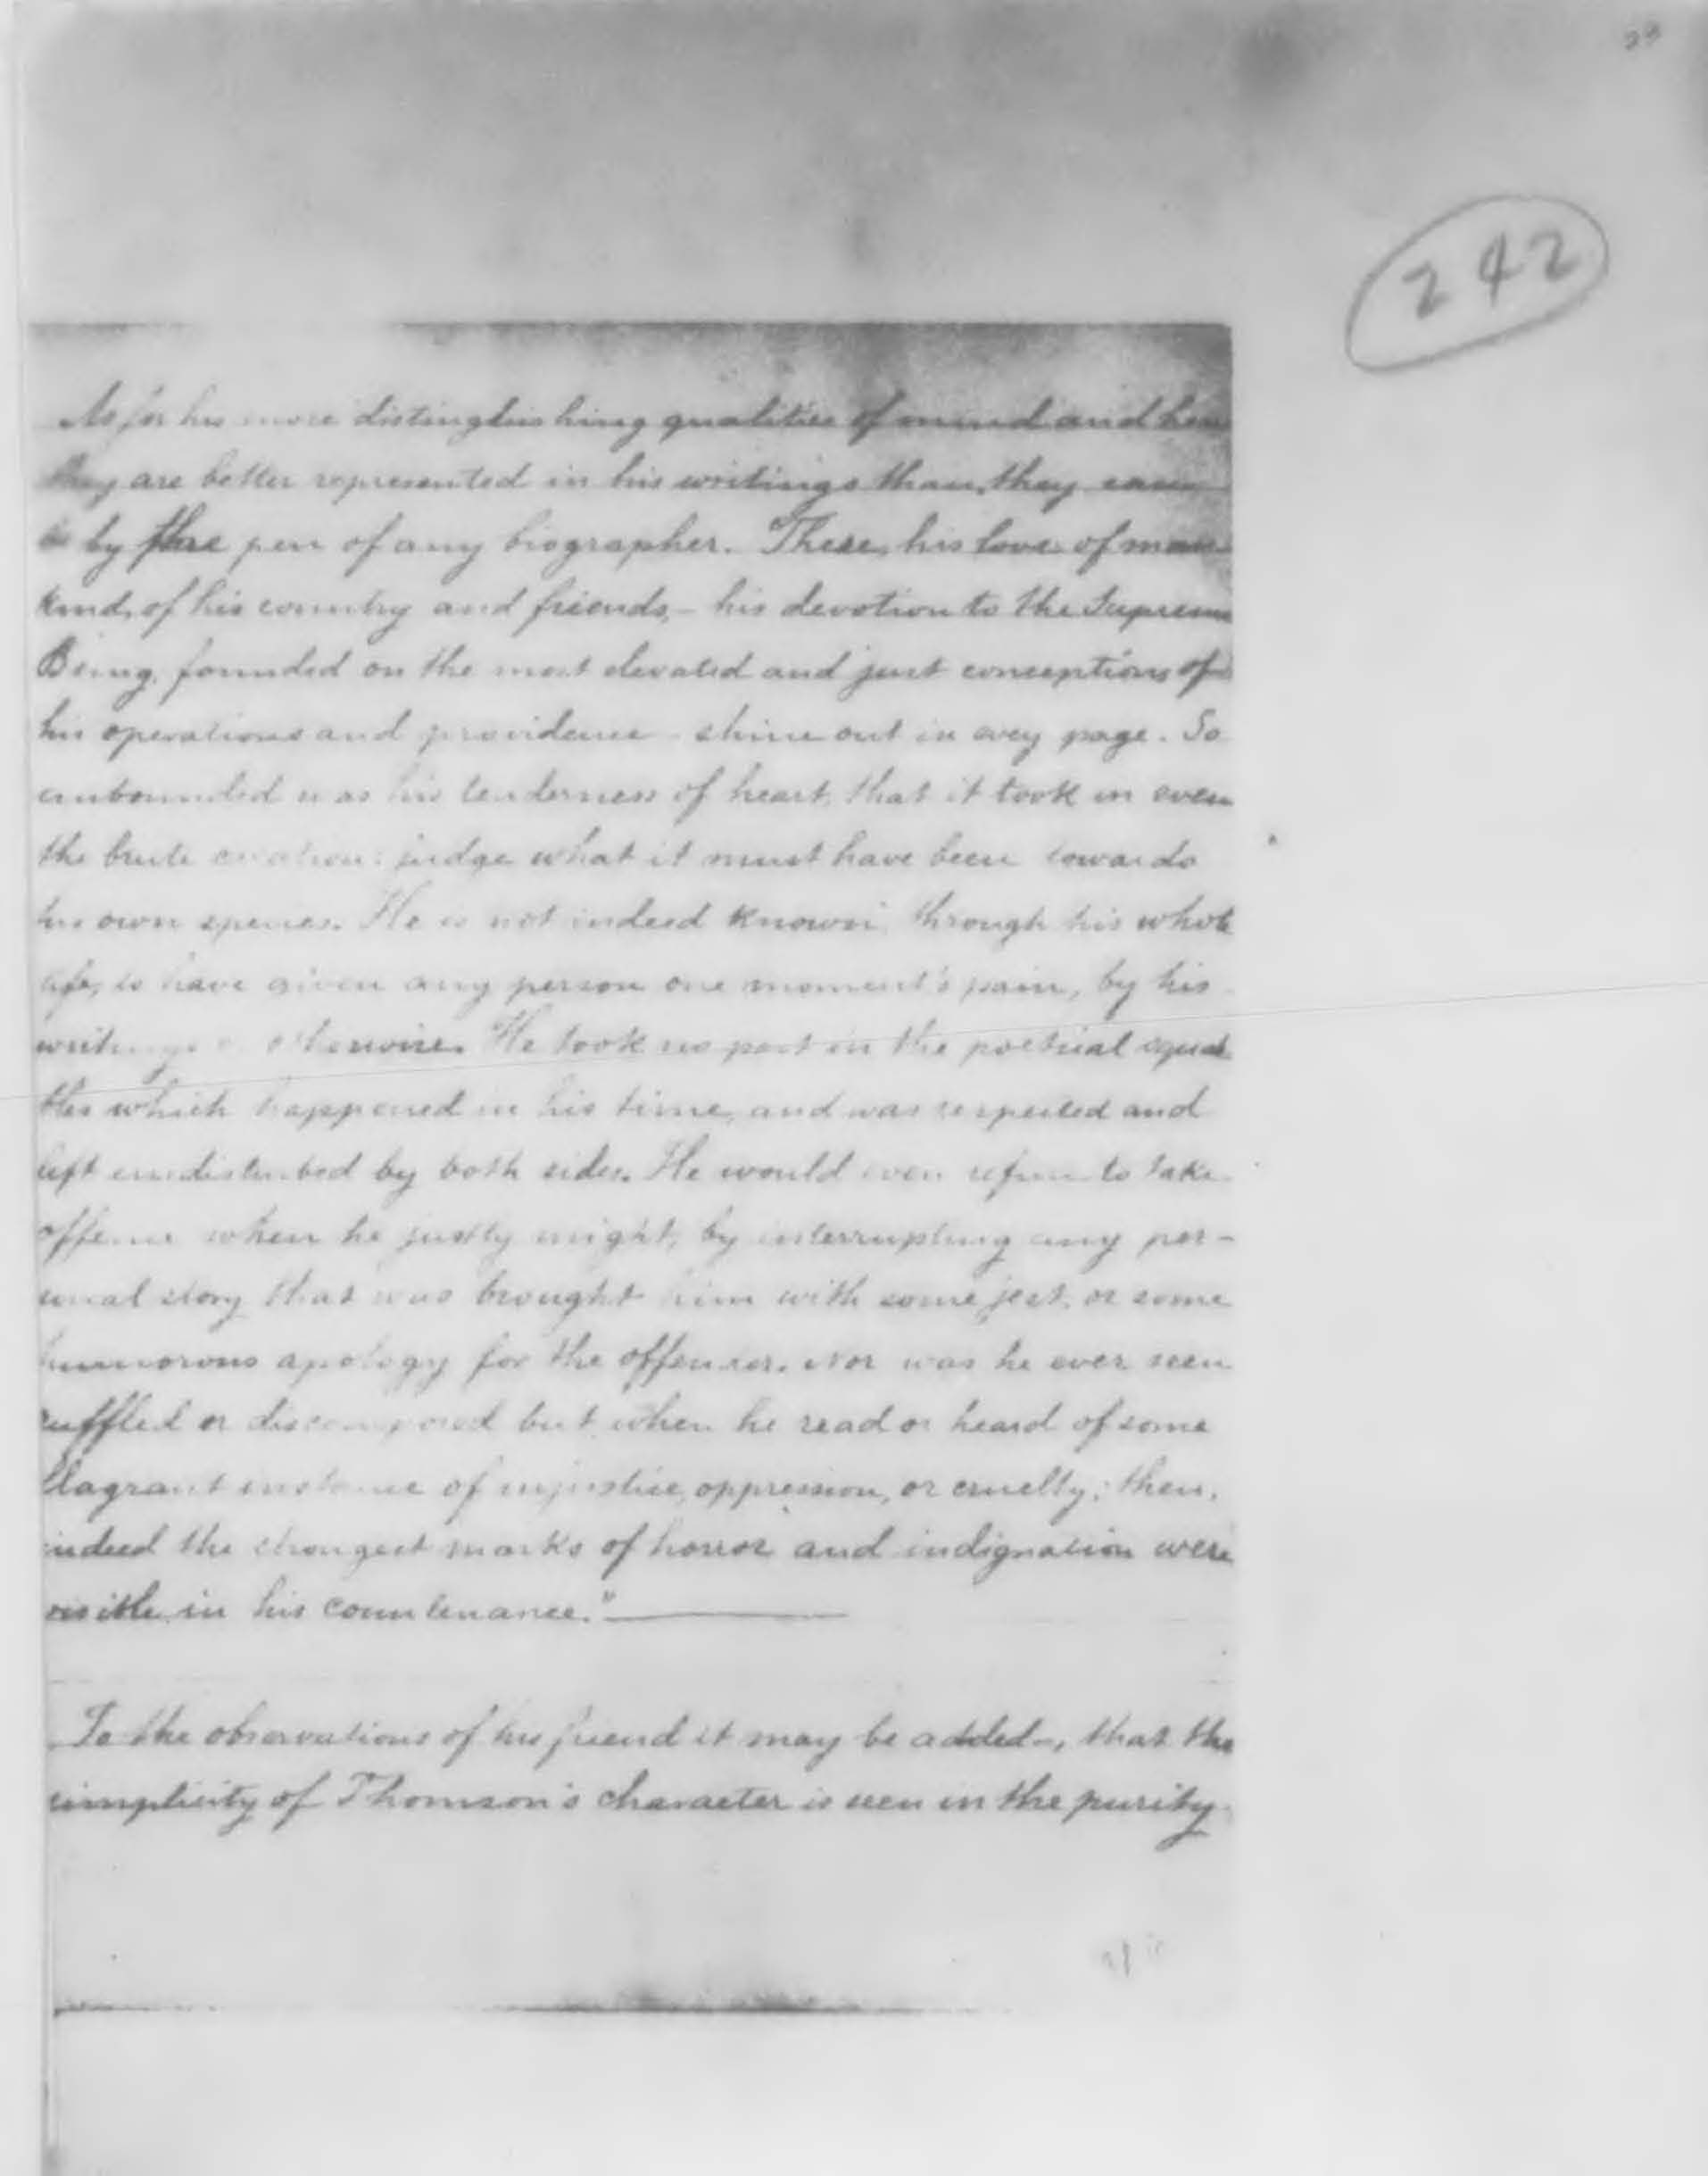 242
As for his more distinguishing qualities of mind and
they are better represented in his writings than, they can
be by the pen of any biographer. There, his love of man-
kind, of his country and friends, - his devotion to the Supreme
Being, founded on the most elevated and just conceptions of
his operations and providence - shine out in evey page. So
unbounded was his tenderness of heart, that it took in even
the brute creation: judge what it must have been towards
his own species. He is not indeed known, through his whole
life, to have given any person one moment's pain, by his
writings or otherwise. He took no part in the poetical squab
bles which happened in his time, and was respected and
left undisturbed by both sides. He would even refuse to take
offence when he justly might, by interrupting any per-
sonal story that was brought him with some jest, or some
humorous apology for the offender. Nor was he ever seen
ruffled or discomposed but when he read or heard of some
flagrant instance of injustice, oppression, or cruelty; then,
indeed the strongest marks of horror and indignation were
visible in his countenance."
To the observations of his friend it may be added -, that the
simplicity of Thomson's character is seen in the purity